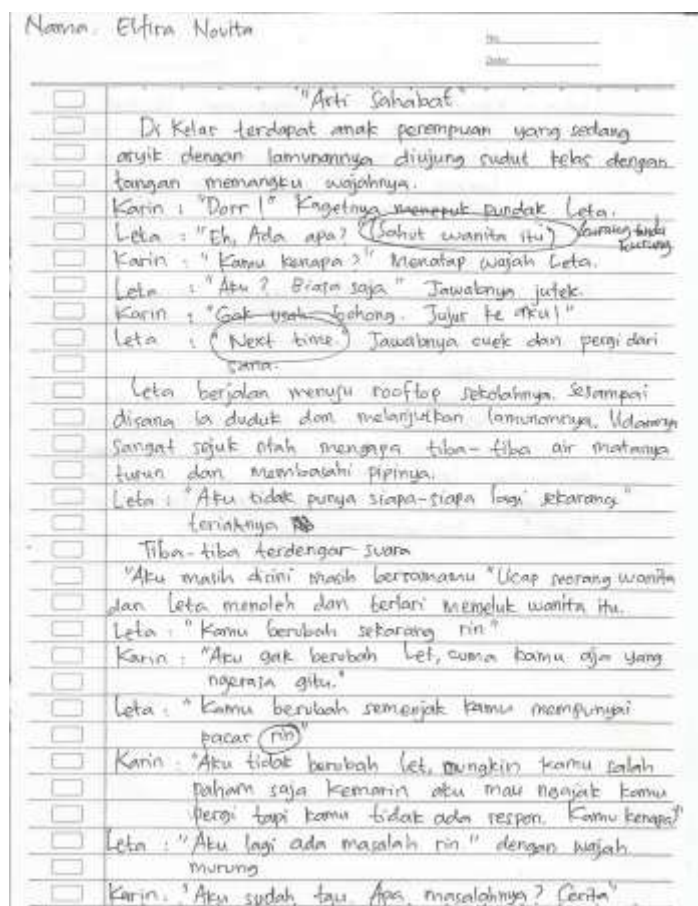 Nama. Elfira Novita
No.
Date:
"Arti Sahabat"
Di Kelas terdapat anak perempuan yang sedang
asyik dengan lamunannya diujung sudut kelas dengan
tangan memangku wajahnya.
Karin : "Dorr!" Kagetnya menepuk pundak Leta.
Leta : "Eh, Ada apa? (Sahut wanita itu) kurang tanda kurung
Karin : "Kamu kenapa?" Menatap wajah Leta.
Leta : "Aku? Biasa saja" Jawabnya jutek.
Karin : "Gak usah bohong. Jujur ke aku!"
Leta : "Next time" Jawabnya cuek dan pergi dari
sana.
Leta berjalan menuju rooftop sekolahnya. Sesampai
disana Ia duduk dan melanjutkan lamunannya. Udaranya
sangat sejuk ntah mengapa tiba-tiba air matanya
turun dan membasahi pipinya.
Leta : "Aku tidak punya siapa-siapa lagi sekarang"
teriaknya
Tiba-tiba terdengar suara
"Aku masih disini masih bersamamu "Ucap seorang wanita
dan Leta menoleh dan berlari memeluk wanita itu.
Leta : "Kamu berubah sekarang rin"
Karin : "Aku gak berubah Let, cuma kamu aja yang
ngerasa gitu."
Leta : "Kamu berubah semenjak kamu mempunyai
pacar rin"
Karin : "Aku tidak berubah let, mungkin kamu salah
paham saja kemarin aku mau ngajak kamu
pergi tapi kamu tidak ada respon. Kamu kenapa?"
Leta : "Aku lagi ada masalah rin" dengan wajah
murung
Karin : "Aku sudah tau. Apa masalahnya? Cerita"